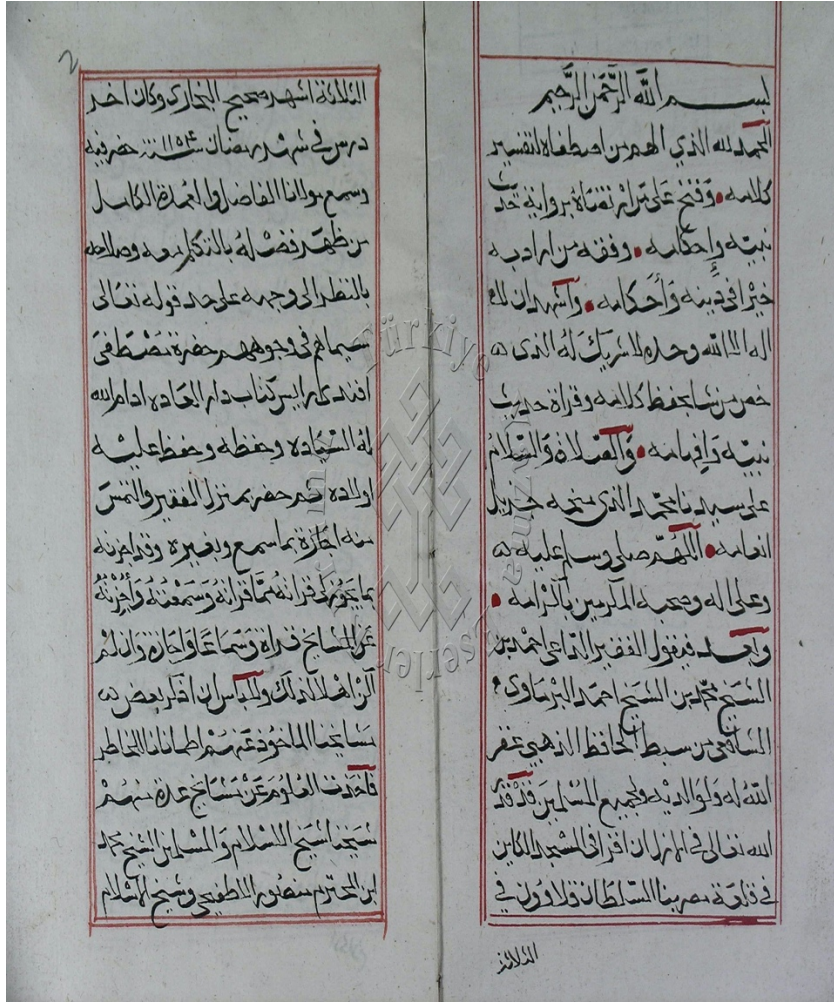 بسم الله الرحمن الرحيم
الحمد لله الذي الهم من اصطفاه لتفسير
كلامه وفتح على من اراد برواية حديث
نبيه واحكامه وفقه من اراد به
خيرا في دينه وأحكامه وأشهد ان لا
اله الا الله وحده لا شريك له الذي
خص من شا بحفظ كلامه وقراة حديث
نبيه وافهامه والصلاة والسلام
على سيدنا محمد الذي منحه جزيل
انعامه اللهم صلي وسلم عليه
وعلى اله وصحبه المكرمين باكرامه
وبعد فيقول الفقير الداعي احمد بن
الشيخ محمد بن الشيخ احمد البرماوى
الشافعي من سبط الحافظ الذهبي غفر
الله له ولوالديه ولجميع المسلمين قد قدر
الله تعالى في الازل ان اقرا في المسجد الكاين
في قلعة مصر بنا السلطان قلاوون في
الثلاثة
2
الثلاثة اشهر صحيح البخارى وكان اخر
درس في شهر رمضان سنة ١١٥٤ حضر فيه
وسمع مولانا الفاضل والعمدة الكامل
من ظهر فضله بالتكلم معه وصلاحه
بالنظر الى وجهه على حد قوله تعالى
سيماهم في وجوههم حضرة مصطفى
افندى رايس كتاب دار السعاده ادام الله
له السياده وحفظه وحفظ عليه
اولاده ثم حضر بمنزل الفقير والتمس
منه اجازة بما سمع وبغيره وقد اجزته
بما يجوز لى قراته مما قراته وسمعته وأجزته
عن المشايخ قراة وسماعا واجازة وان لم
اكن اهلا لذلك ولا باس ان اذكر بعض
مشايخنا الماخوذ عنهم اطمانانا للخاطر
فاخذت العلوم عن مشايخ عدة منهم
شيخنا شيخ الاسلام والمسلمين الشيخ محمد
ابن المحترم منصور الاطفيحي وشيخ الاسلام
Türkiye
Yazma Eserler